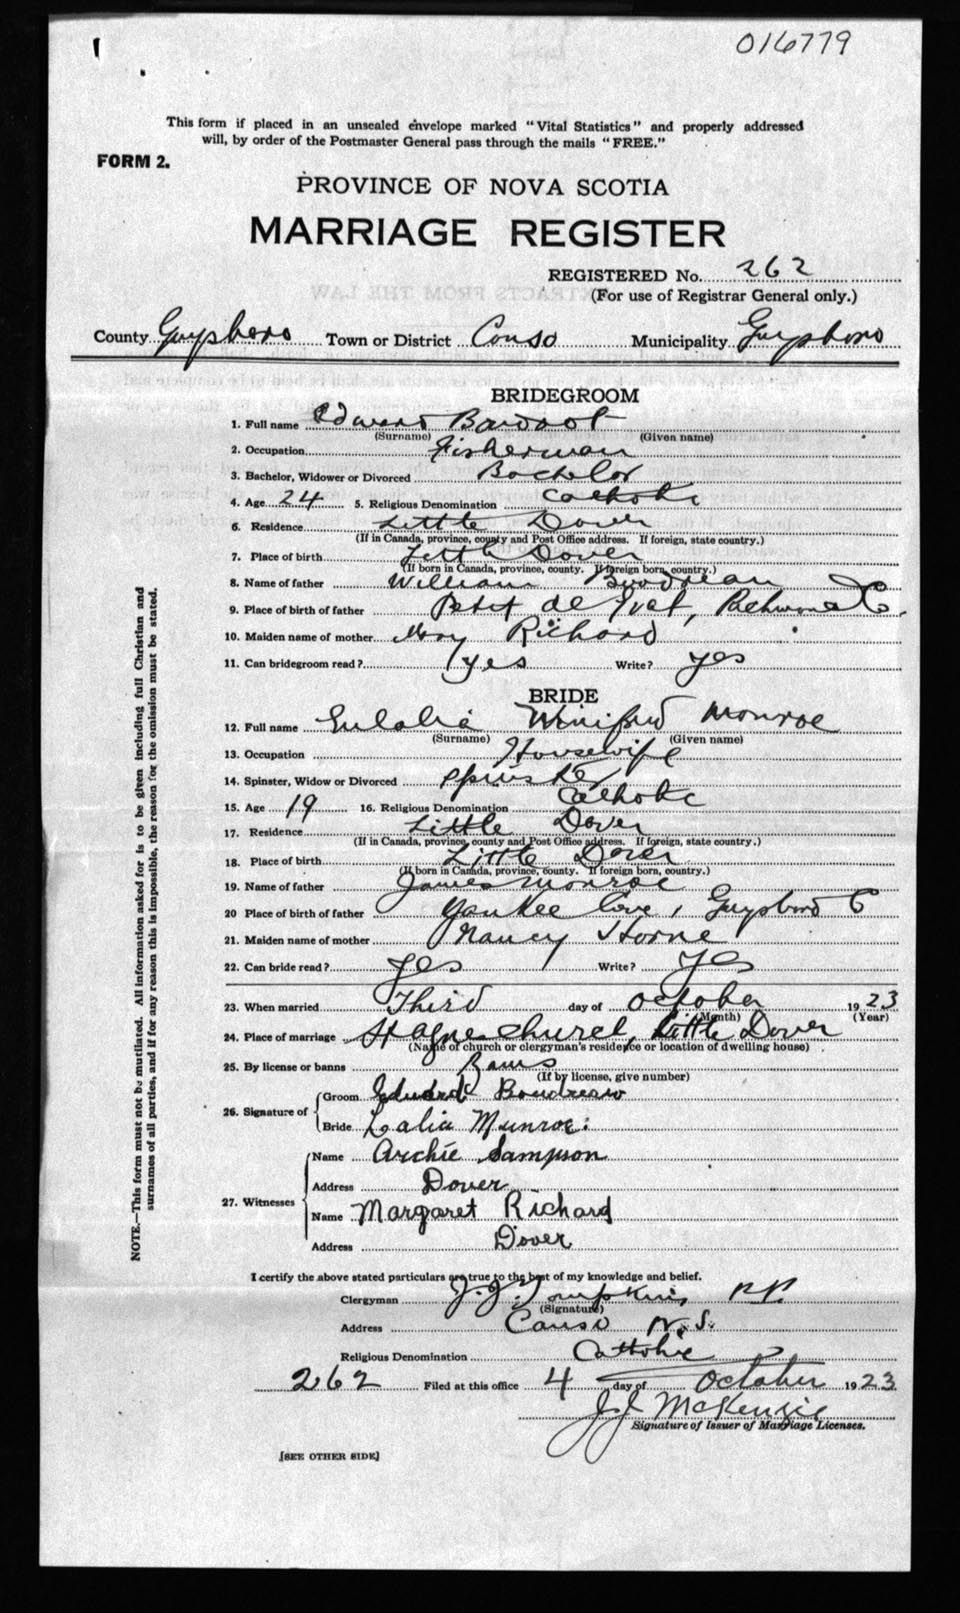 016779
This form if placed in an unsealed envelope marked "Vital Statistics" and properly addressed
will, by order of the Postmaster General pass through the mails "FREE."
FORM 2.
PROVINCE OF NOVA SCOTIA
MARRIAGE REGISTER
REGISTERED No. 262
(For use of Registrar General only.)
County Guysboro Town or District Canso Municipality Guysboro
BRIDEGROOM
1. Full name Edward
(Surname) (Given name)
2. Occupation Fisherman
3. Bachelor, Widower or Divorced Bachelor
4. Age 24 5. Religious Denomination Catholic
6. Residence Little Dover
(If in Canada, province, county and Post Office address. If foreign, state country.)
7. Place of birth Little Dover
(If born in Canada, province, county. If foreign born, country.)
8. Name of father William Boudreau
9. Place of birth of father Petit de Grat, Richmond Co.
10. Maiden name of mother Mary Richard
11. Can bridegroom read? yes Write? yes
BRIDE
12. Full name Eulalia Winifred Monroe
(Surname) (Given name)
13. Occupation Housewife
14. Spinster, Widow or Divorced Spinster
15. Age 19 16. Religious Denomination Catholic
17. Residence Little Dover
(If in Canada, province, county and Post Office address. If foreign, state country.)
18. Place of birth Little Dover
(If born in Canada, province, county. If foreign born, country.)
19. Name of father James Monroe
20 Place of birth of father Yankee Cove, Guysboro C
21. Maiden name of mother Nancy Horne
22. Can bride read? yes Write? yes
23. When married Third day of October 1923
(Month) (Year)
24. Place of marriage St Agnes Church, Little Dover
(Name of church or clergyman's residence or location of dwelling house)
25. By license or banns Banns
(If by license, give number)
26. Signature of Groom Edward Boudreau
Bride Lalia Munroe
27. Witnesses Name Archie Sampson
Address Dover
Name Margaret Richard
Address Dover
I certify the above stated particulars are true to the best of my knowledge and belief.
Clergyman J. J. Tompkins, P.P.
(Signature)
Address Canso N.S.
Religious Denomination Catholic
262 Filed at this office 4 day of October 1923
J J McKenzie
Signature of Issuer of Marriage Licenses.
[SEE OTHER SIDE]
NOTE.—This form must not be mutilated. All information asked for is to be given including full Christian and
surnames of all parties, and if for any reason this is impossible, the reason for the omission must be stated.